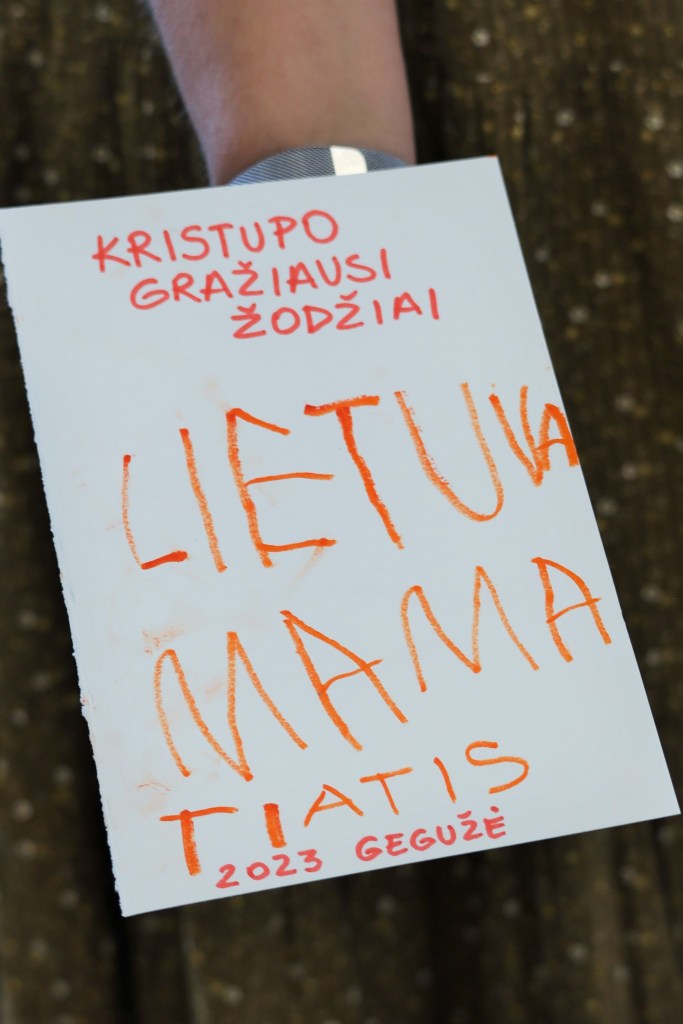 KRISTUPO
GRAŽIAUSI
ŽODŽIAI
LIETUVA
MAMA
TIATIS
2023 GEGUŽĖ